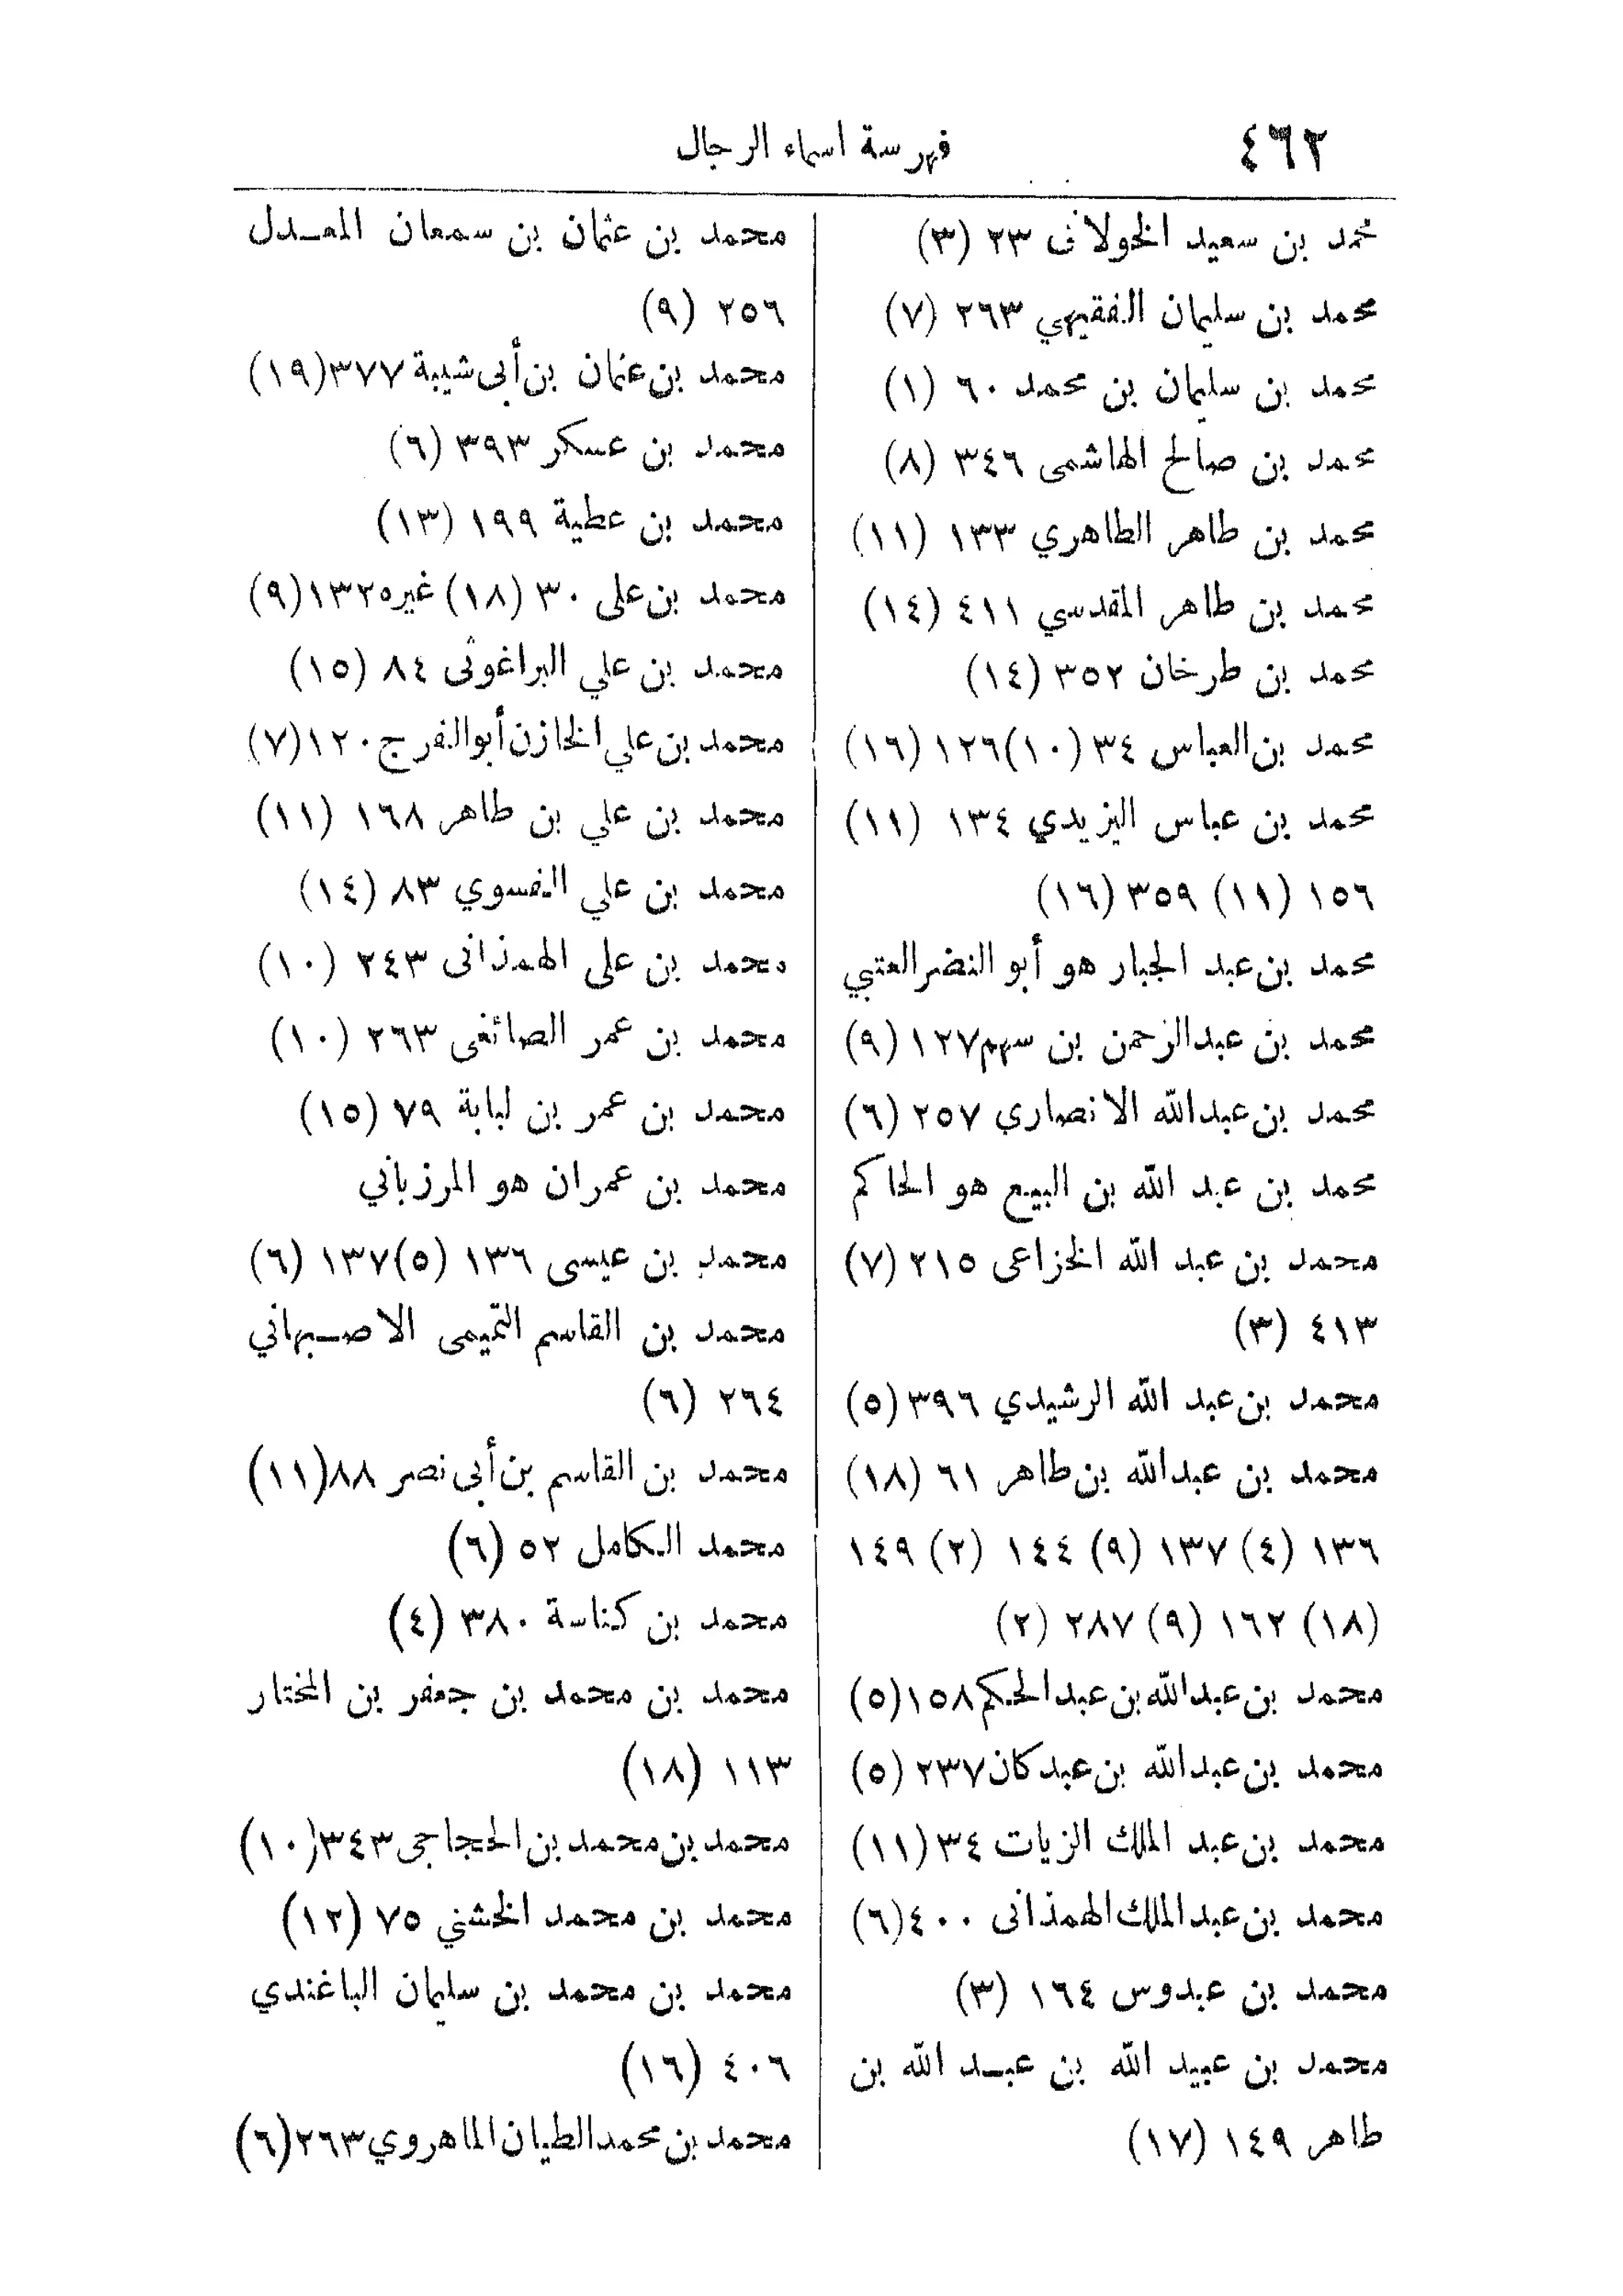 ٤٦٢
فهرسة اسماء الرجال
محمد بن سعيد الخولانى ٢٣ (٣)
محمد بن سليمان الفقيهي ٢٦٣ (٧)
محمد بن سليمان بن محمد ٦٠ (١)
محمد بن صالح الهاشمى ٣٤٦ (٨)
محمد بن طاهر الطاهري ١٣٣ (١١)
محمد بن طاهر المقدسي ٤١١ (١٤)
محمد بن طرخان ٣٥٢ (١٤)
محمد بن العباس ٣٤ (١٠) ١٢٦ (١٦)
محمد بن عباس اليزيدي ١٣٤ (١١)
١٥٦ (١١) ٣٥٩ (١٦)
محمد بن عبد الجبار هو أبو النضر العتبي
محمد بن عبد الرحمن بن سهم ١٢٧ (٩)
محمد بن عبد الله الانصاري ٢٥٧ (٦)
محمد بن عبد الله بن البيع هو الحاكم
محمد بن عبد الله الخزاعى ٢١٥ (٧)
٤١٣ (٣)
محمد بن عبد الله الرشيدي ٣٩٦ (٥)
محمد بن عبد الله بن طاهر ٦١ (١٨)
١٣٦ (٤) ١٣٧ (٩) ١٤٤ (٢) ١٤٩
(١٨) ١٦٢ (٩) ٢٨٧ (٢)
محمد بن عبد الله بن عبد الحكم ١٥٨ (٥)
محمد بن عبد الله بن عبدكان ٢٣٧ (٥)
محمد بن عبد الملك الزيات ٣٤ (١١)
محمد بن عبد الملك الهمذانى ٤٠٠ (٦)
محمد بن عبدوس ١٦٤ (٣)
محمد بن عبيد الله بن عبد الله بن
طاهر ١٤٩ (١٧)
محمد بن عثمان بن سمعان المعدل
٢٥٦ (٩)
محمد بن عثمان بن أبى شيبة ٣٧٧ (١٩)
محمد بن عسكر ٣٩٣ (٦)
محمد بن عطية ١٩٩ (١٣)
محمد بن على ٣٠ (١٨) غيره ١٣٢ (٩)
محمد بن علي البراغوثى ٨٤ (١٥)
محمد بن علي الخازن أبو الفرج ١٢٠ (٧)
محمد بن علي بن طاهر ١٦٨ (١١)
محمد بن علي الفسوي ٨٣ (١٤)
محمد بن على الهمذانى ٢٤٣ (١٠)
محمد بن عمر الصائغى ٢٦٣ (١٠)
محمد بن عمر بن لبابة ٧٩ (١٥)
محمد بن عمران هو المرزباني
محمد بن عيسى ١٣٦ (٥) ١٣٧ (٦)
محمد بن القاسم التميمى الاصبهاني
٢٦٤ (٦)
محمد بن القاسم بن أبى نصر ٨٨ (١١)
محمد الكامل ٥٢ (٦)
محمد بن كناسة ٣٨٠ (٤)
محمد بن محمد بن جعفر بن المختار
١١٣ (١٨)
محمد بن محمد بن الحجاجى ٣٤٣ (١٠)
محمد بن محمد الخشني ٧٥ (١٢)
محمد بن محمد بن سليمان الباغندي
٤٠٦ (١٦)
محمد بن محمد الطيان الماهروي ٢٦٣ (٦)